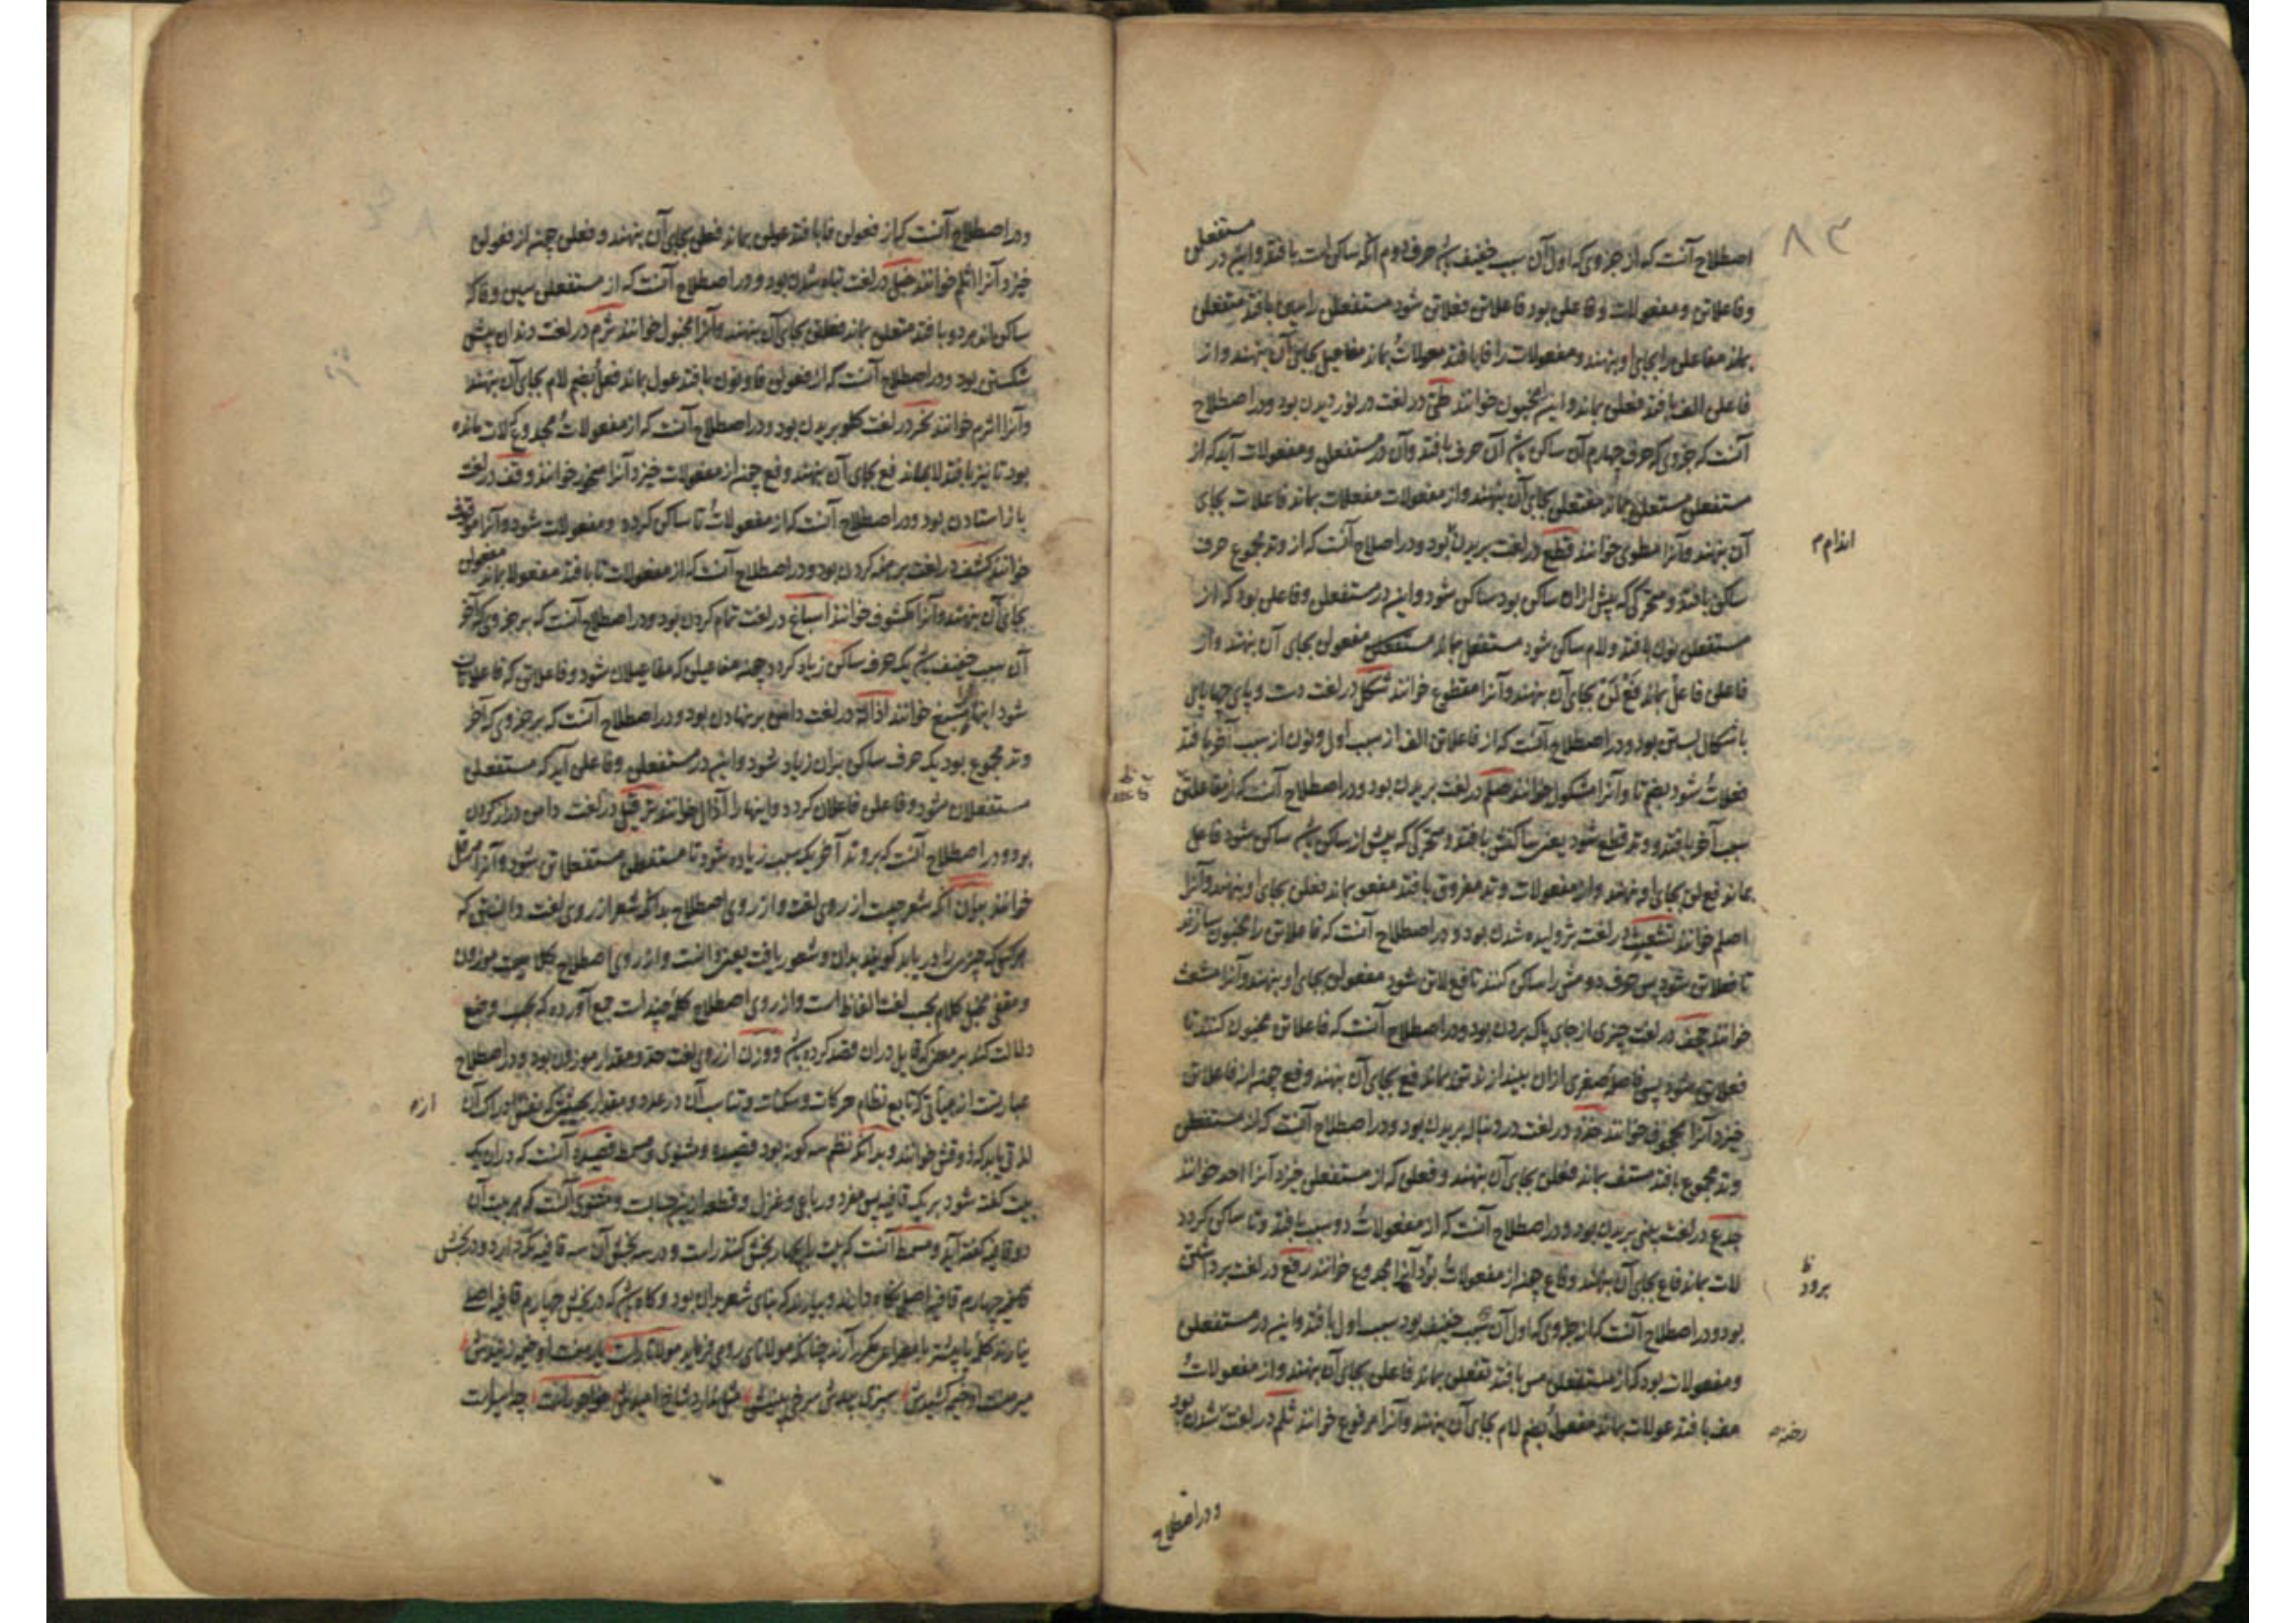 ۸۳
اصطلاح آنست که از جزوی که اول آن سبب خفیف باشد حرف دوم آنکه ساکن است بافتد و این در مستفعلن
وفاعلاتن و مفعولات و فاعلن بود فاعلاتن فعلاتن شود مستفعلن را سین بافتد متفعلن
بماند مفاعلن را بجای او بنهند و مفعولات را فا بافتد معولات بماند مفاعیل بجای آن بنهند و از
فاعلن الف بافتد فعلن بماند و این مخبون خوانند طی در لغت در نوردیدن بود و در اصطلاح
آنست که جزوی که حرف چهارم آن ساکن باشد آن حرف بافتد و آن در مستفعلن و مفعولات آید که از
مستفعلن مستعلن بماند مفتعلن بجای آن بنهند و از مفعولات مفعلات بماند فاعلات بجای
آن بنهند و آنرا مطوی خوانند قطع در لغت بریدن بود و در اصطلاح آنست که از وتد مجموع حرف
ساکن بافتد و متحرکی که پیش ازان ساکن بود ساکن شود و این در مستفعلن و فاعلن بود که از
مستفعلن نون بافتد و لام ساکن شود مستفعل بماند مفعولن بجای آن بنهند و از
فاعلن فاعل بماند فع لن بجای آن بنهند و آنرا مقطوع خوانند شکل در لغت دست و پای چهارپای
باشکال بستن بود و در اصطلاح آنست که از فاعلاتن الف از سبب اول و نون از سبب آخر بافتد
فعلات شود بضم تا و آنرا مشکول خوانند صلم در لغت بریدن بود و در اصطلاح آنست که از فاعلاتن
سبب آخر بافتد و وتد قطع شود یعنی ساکنش بافتد و متحرکی که پیش از ساکن باشد ساکن شود فاعل
بماند فع لن بجای او بنهند و از مفعولات وتد مفروق بافتد مفعو بماند فعلن بجای او بنهند و آنرا
اصلم خوانند تشعیث در لغت ژولیده شدن بود و در اصطلاح آنست که فاعلاتن را مخبون سازند
تا فعلاتن شود پس حرف دومش را ساکن کنند تا فع لاتن شود مفعولن بجای او بنهند و آنرا مشعث
خوانند جحف در لغت چیزی از جای پاک بردن بود و در اصطلاح آنست که فاعلاتن مخبون کنند تا
فعلاتن شود پس فاصله صغری ازان بیندازند تن بماند فع بجای آن بنهند و فع چون از فاعلاتن
خیزد آنرا مجحوف خوانند حذذ در لغت دنباله بریدن بود و در اصطلاح آنست که از مستفعلن
وتد مجموع بافتد مستف بماند فعلن بجای آن بنهند و فعلن که از مستفعلن خیزد آنرا احذ خوانند
جدع در لغت بینی بریدن بود و در اصطلاح آنست که از مفعولات دو سبب بافتد و تا ساکن گردد
لات بماند فاع بجای آن بنهند و فاع چون از مفعولات بود آنرا مجدوع خوانند رفع در لغت برداشتن
بود و در اصطلاح آنست که از جزوی که اول آن دو سبب خفیف بود سبب اول بافتد و این در مستفعلن
و مفعولات بود که از مستفعلن مس بافتد تفعلن بماند فاعلن بجای آن بنهند و از مفعولات
مف بافتد عولات بماند مفعول بضم لام بجای آن بنهند و آنرا مرفوع خوانند ثلم در لغت شدن بود
رخنه
و در اصطلاح
و در اصطلاح آنست که از فعولن فا بافتد عولن بماند فعلن بجای آن بنهند و فعلن چون از فعولن
خیزد آنرا اثلم خوانند خبل در لغت تباه شدن بود و در اصطلاح آنست که از مستفعلن سین و فا که
ساکن اند هر دو بافتد متعلن بماند فعلتن بجای آن بنهند و آنرا مخبول خوانند ثرم در لغت دندان پیش
شکستن بود و در اصطلاح آنست که از فعولن فا و نون بافتد عول بماند فعل بضم لام بجای آن بنهند
و آنرا اثرم خوانند نحر در لغت گلو بریدن بود و در اصطلاح آنست که از مفعولات مجدوع که لات مانده
بود تا نیز بافتد لا بماند فع بجای آن بنهند و فع چون از مفعولات خیزد آنرا منحور خوانند وقف در لغت
باز استادن بود و در اصطلاح آنست که از مفعولات تا ساکن گردد و مفعولات شود و آنرا موقوف
خوانند کشف در لغت برهنه کردن بود و در اصطلاح آنست که از مفعولات تا بافتد مفعولا بماند مفعولن
بجای آن بنهند و آنرا مکشوف خوانند اسباغ در لغت تمام کردن بود و در اصطلاح آنست که بر جزوی که آخر
آن سبب خفیف باشد یک حرف ساکن زیاد گردد چون مفاعیلن که مفاعیلان شود و فاعلاتن که فاعلاتان
شود اینها را مسبغ خوانند اذاله در لغت دامن برنهادن بود و در اصطلاح آنست که بر جزوی که آخر
وتد مجموع بود یک حرف ساکن بران زیاد شود و این در مستفعلن و فاعلن آید که مستفعلن
مستفعلان شود و فاعلن فاعلان گردد و اینها را مذال خوانند ترفیل در لغت دامن دراز کردن
بود و در اصطلاح آنست که بر وتد آخر یک سبب زیاده شود تا مستفعلن مستفعلاتن شود و آنرا مرفل
خوانند بیان آنکه شعر چیست از روی لغت و از روی اصطلاح بدانکه شعر از روی لغت دانستن که
هر کسی که چیزی را دریابد گویند بدان و شعور یافت یعنی دانست و از روی اصطلاح کلامیست موزون
و مقفی مخیل کلام بحسب لغت الفاظ است و از روی اصطلاح کلمهٔ چند است جمع آورده که بحسب وضع
دلالت کند بر معنی که قایل دران قصد کرده باشد و وزن از روی لغت حد و مقدار موزون بود و در اصطلاح
عبارتست از هیأتی که تابع نظام حرکات و سکنات و تناسب آن در عدد و مقدار بحیثیتی که نفس از ادراک آن
لذتی یابد که ذوقش خوانند و بدانکه نظم سه گونه بود قصیده و مثنوی و مسمط قصیده آنست که دران یک
بیت گفته شود بر یک قافیه پس مفرد و رباعی و غزل و قطعه ازین حسابست و مثنوی آنست که هر بیت آن
دو قافیه گفته آید و مسمط آنست که بیت را چهار بخش کنند راست و در سه بخش آن سه قافیه نگه دارد و در بخش
چهارم قافیه اصلی نگاه دارند و بیارند که بنای شعر بران بود و گاه باشد که در بخش چهارم قافیه اصلی